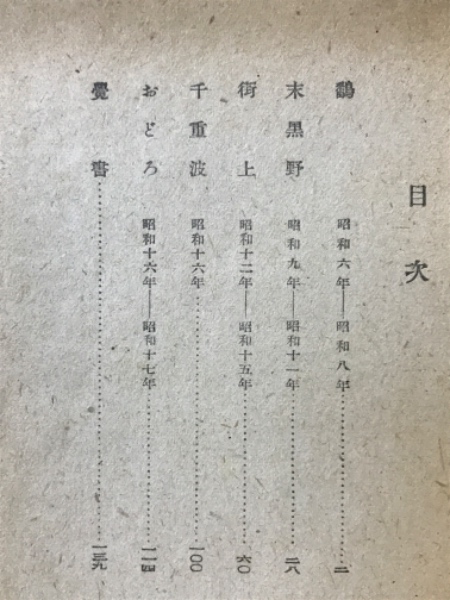 目次
昭和六年――昭和八年……二
末黒野 昭和九年――昭和十一年……二八
街上 昭和十二年――昭和十五年……六〇
千重波 昭和十六年……一〇〇
おどろ 昭和十六年――昭和十七年……一一四
覺書……一三九